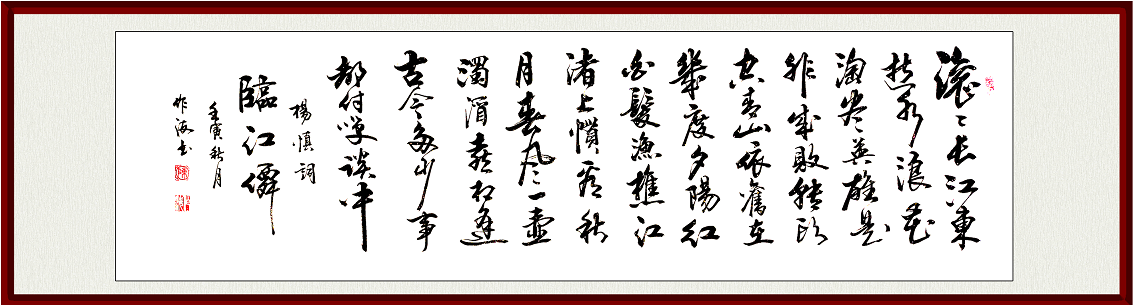 滚〻長江東
逝水浪花
淘尽英雄是
非成敗转頭
空青山依舊在
幾度夕陽紅
白髮漁樵江
渚上慣看秋
月春风一壶
濁酒喜相逢
古今多少事
都付笑談中
楊慎詞
臨江僊
壬寅秋月
作海书